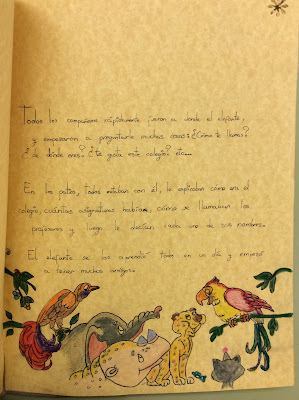 Todos los compañeros rápidamente fueron a donde el elefante,
y empezaron a preguntarle muchas cosas: ¿Cómo te llamas?
¿de dónde eres? ¿te gusta este colegio? etc...
En los patios, todos estaban con él, le explicaban cómo era el
colegio, cuántas asignaturas habían, cómo se llamaban los
profesores y luego le decían cada uno de sus nombres.
El elefante se los aprendió todos en un día y empezó
a tener muchos amigos.